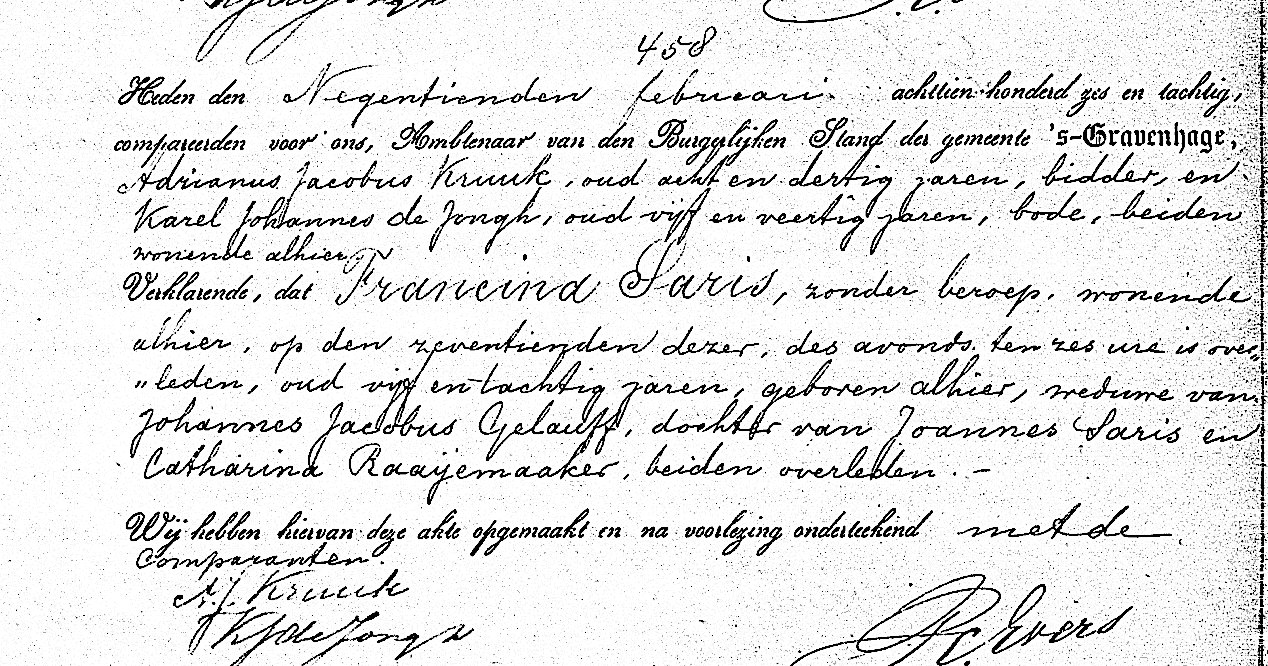 458
Heden den Negentienden februari achttien honderd zes en tachtig,
compareerden voor ons, Ambtenaar van den Burgerlijken Stand der gemeente 's-Gravenhage,
Adrianus Jacobus Kruuk, oud acht en dertig jaren, bidder, en
Karel Johannes de Jongh, oud vijf en veertig jaren, bode, beiden
wonende alhier
Verklarende, dat Francina Saris, zonder beroep, wonende
alhier, op den zeventienden dezer, des avonds ten zes ure is over„
„leden, oud vijf en tachtig jaren, geboren alhier, weduwe van
Johannes Jacobus Gelauff, dochter van Joannes Saris en
Catharina Raaijemaaker, beiden overleden. –
Wij hebben hiervan deze akte opgemaakt en na voorlezing onderteekend met de
Comparanten.
A.J. Kruuk
KJdeJongh
Evers